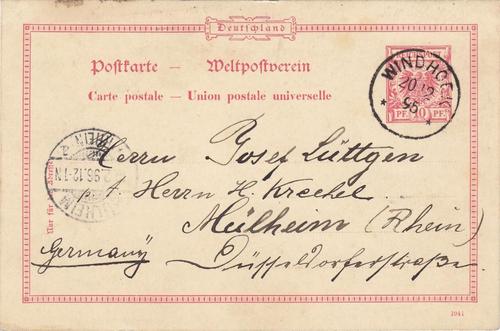 Deutschland
Postkarte — Weltpostverein
Carte postale — Union postale universelle
WINDHOEK
20/12
95
PF. 10 PF.
Herrn Josef Lüttgen
p. A. Herrn H. Krechel
Mülheim (Rhein)
Germany Düsseldorferstraße.
Nur für
.96.12-1N
1094